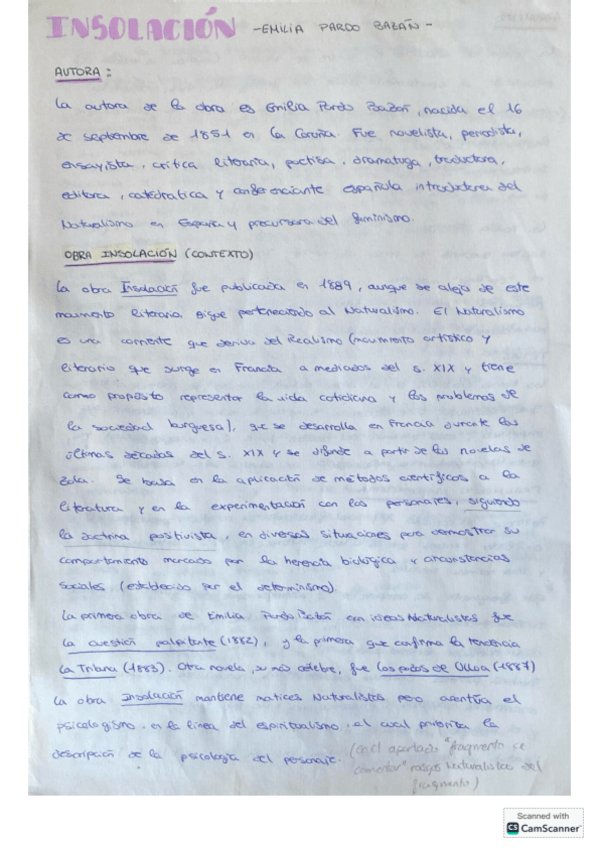 INSOLACIÓN -EMILIA PARDO BAZÁN-
AUTORA:
La autora de la obra es Emilia Pardo Bazán, nacida el 16
de septiembre de 1851 en La Coruña. Fue novelista, periodista,
ensayista, crítica literaria, poetisa, dramatuga, traductora,
editora, catedratica y conferenciante española introductora del
Naturalismo en España y precursora del feminismo.
OBRA INSOLACIÓN (CONTEXTO)
La obra Insolación fue publicada en 1889, aunque se aleja de este
movimiento literario sigue perteneciendo al Naturalismo. El Naturalismo
es una corriente que deriva del Realismo (movimiento artístico y
literario que surge en Francia a mediados del s. XIX y tiene
como propósito representar la vida cotidiana y los problemas de
la sociedad burguesa), que se desarrolla en Francia durante las
últimas décadas del s. XIX y se difunde a partir de las novelas de
Zola. Se basa en la aplicación de métodos científicos a la
literatura y en la experimentación con los personajes, siguiendo
la doctrina positivista, en diversas situaciones para demostrar su
comportamiento marcado por la herencia biológica y circunstancias
sociales (establecido por el determinismo).
La primera obra de Emilia Pardo Bazán con ideas Naturalistas fue
La cuestión palpitante (1882), y la primera que confirma la tendencia
La Tribuna (1883). Otra novela, su más célebre, fue Los pazos de Ulloa (1887)
La obra Insolación mantiene matices Naturalistas pero acentúa el
psicologismo en la línea del espiritualismo, el cual prioriza la
descripción de la psicología del personaje. (en el apartado "fragmento se
comentar" rasgos Naturalistas del
fragmento)
Scanned with
CS CamScanner